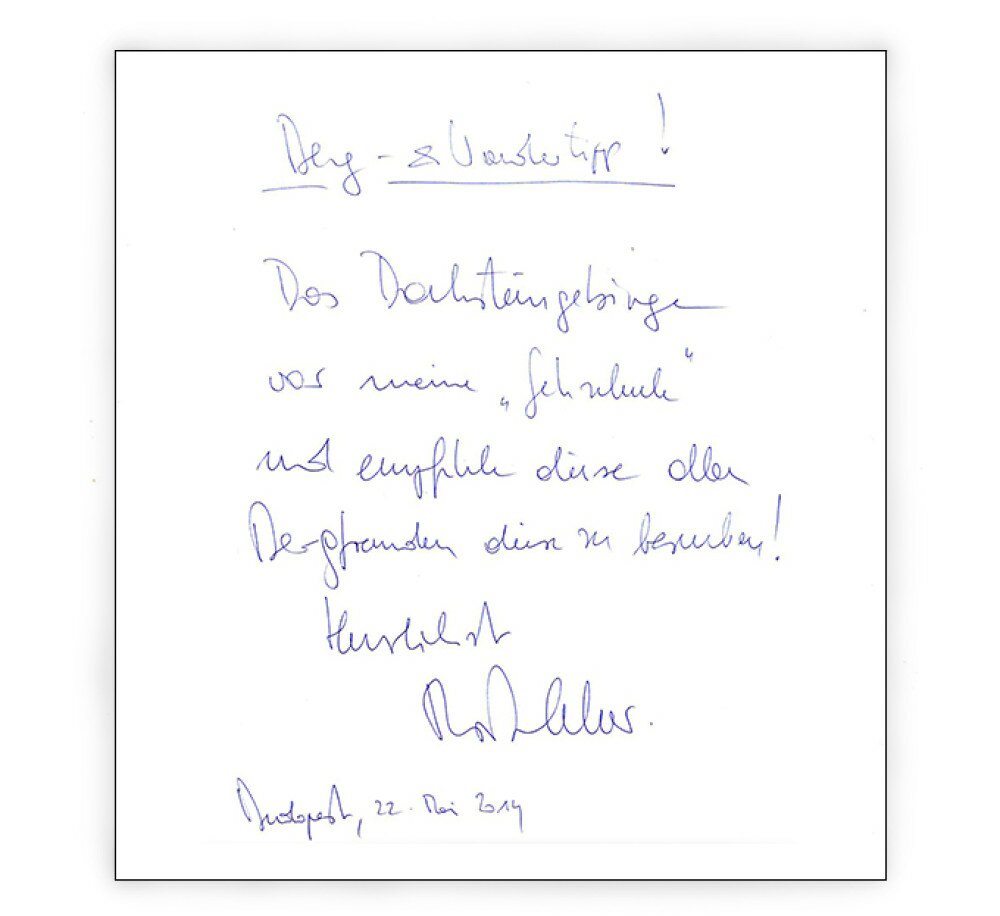 Berg- & Wandertipp!
Das Dachsteingebirge
war meine „Gehschule"
und empfehle diese allen
Bergfreunden diese zu besuchen!
Herzlichst
Budapest, 22. Mai 2014